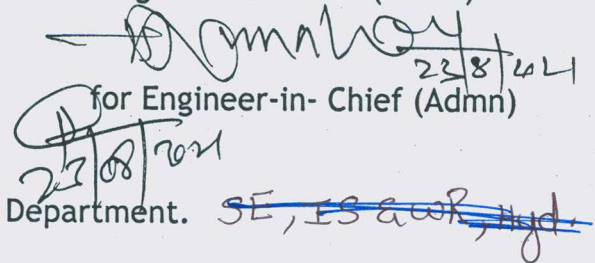 23/8/2021
for Engineer-in- Chief (Admn)
23/08/2021
Department. SE, IS & WR, Hyd.